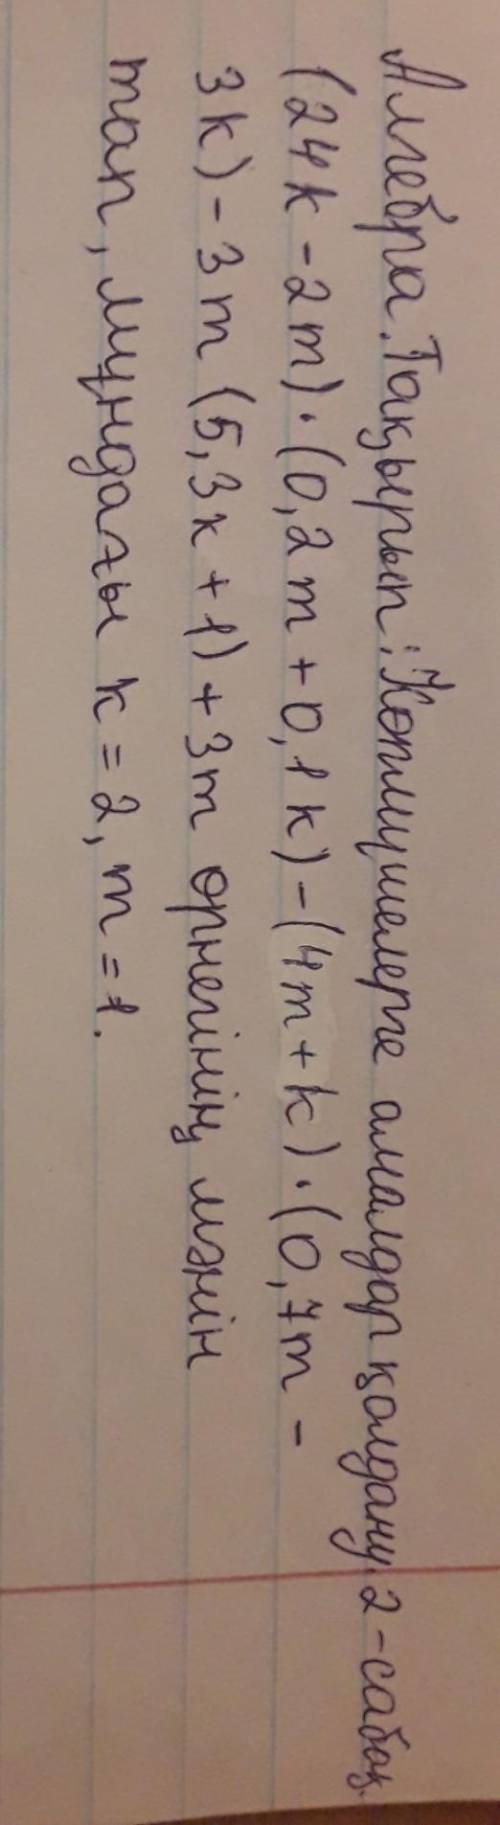 Алгебра. Тақырып: Көпмүшелерге амалдар қолдану. 2-сабақ.
(24k-2m)·(0,2m+0,1k)-(4m+k)·(0,7m-
3k)-3m(5,3k+1)+3m өрнегінің мәнін
тап, мұндағы k=2, m=1.